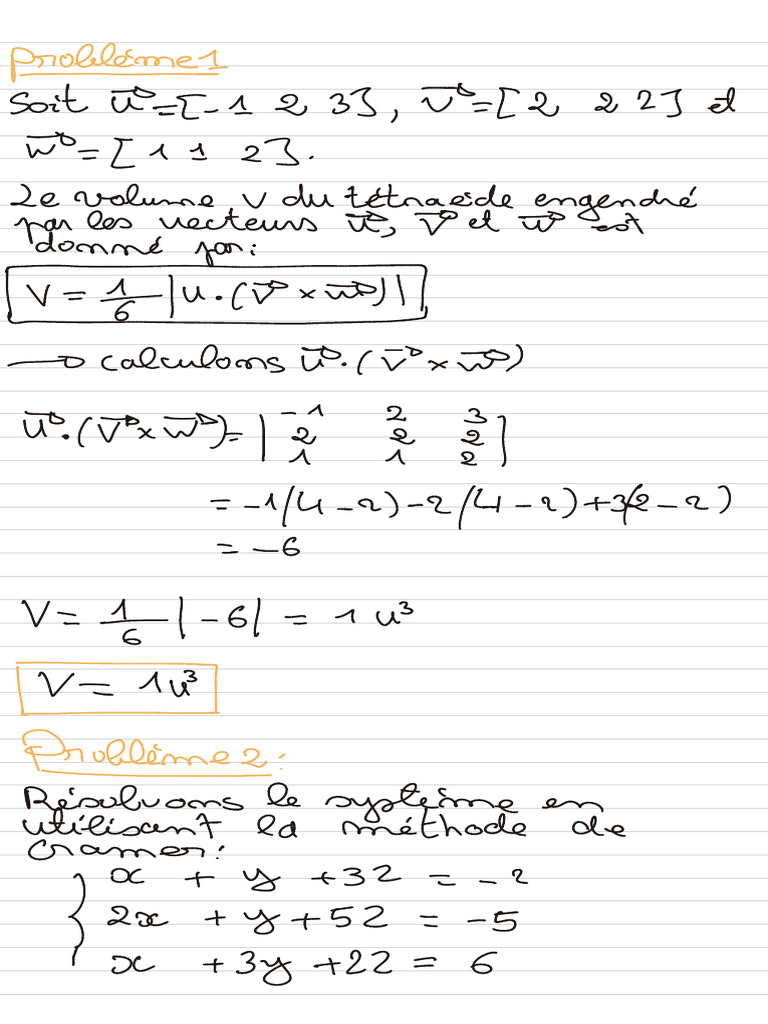 Problème 1
Soit u⃗=[-1 2 3], v⃗=[2 2 2] et
w⃗=[1 1 2].
Le volume V du tétraède engendré
par les vecteurs u⃗, v⃗ et w⃗ est
donné par:
V = 1/6 |u·(v⃗ × w⃗)|
→ calculons u⃗·(v⃗ × w⃗)
u⃗·(v⃗ × w⃗) = | -1 2 3
2 2 2
1 1 2 |
= -1(4-2)-2(4-2)+3(2-2)
= -6
V = 1/6 |-6| = 1 u³
V = 1u³
Problème 2:
Résolvons le système en
utilisant la méthode de
cramer:
x + y + 3z = -2
2x + y + 5z = -5
x + 3y + 2z = 6